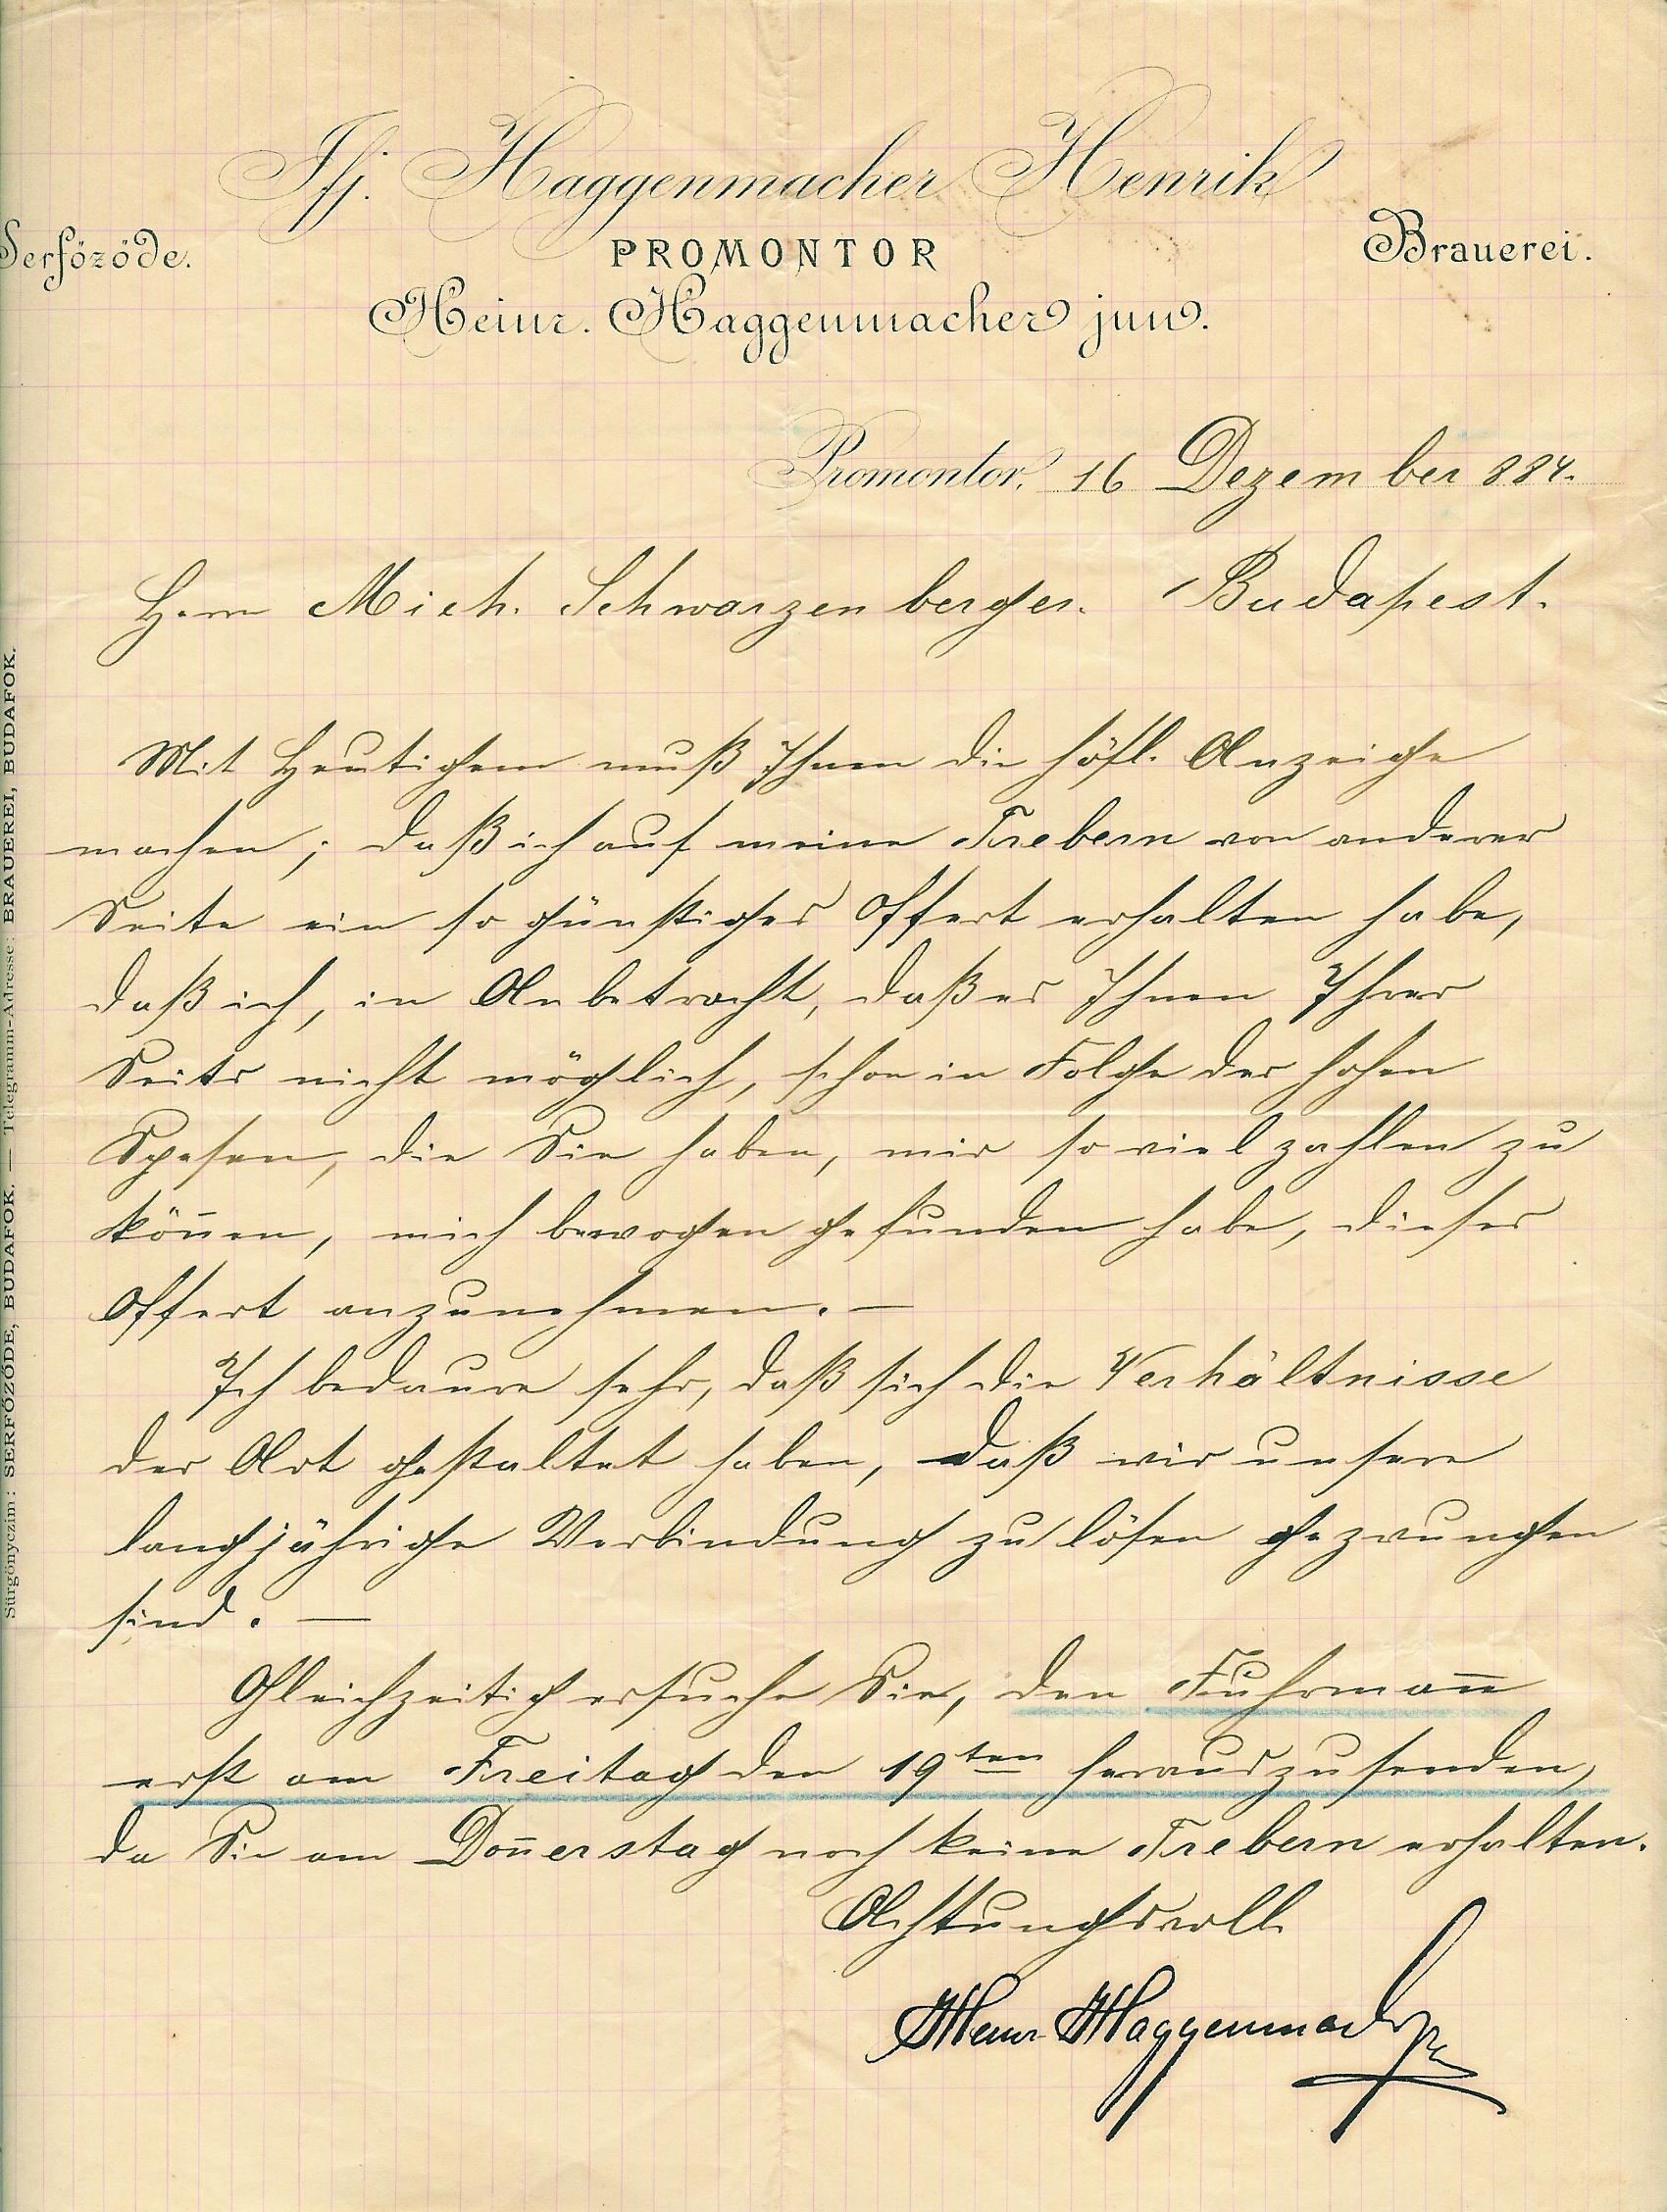 Ifj. Haggenmacher Henrik
Serfőződe.
PROMONTOR
Brauerei.
Heinr. Haggenmacher jun.
Promontor, 16 Dezember 884.
Herrn Mich. Schwarzenberger. Budapest.
Mit Heutigem muß Ihnen die höfl. Anzeige
machen; daß ich auf meine Trebern von anderer
Seite ein so günstiges Offert erhalten habe,
daß ich, in Anbetracht, daß es Ihnen Ihrer
Seits nicht möglich, schon in Folge der hohen
Spesen, die Sie haben, mir so viel zahlen zu
kön̄en, mich bewogen gefunden habe, dieses
Offert anzunehmen. —
Ich bedaure sehr, daß sich die Verhältnisse
der Art gestaltet haben, daß wir unsere
langjährige Verbindung zu lösen gezwungen
sind. —
Gleichzeitig ersuche Sie, den Fuhrman̄
erst am Freitag den 19ten herauszusenden,
da Sie am Don̄erstag noch keine Trebern erhalten.
Achtungsvoll
Heinr. Haggenmacher
Sürgönyczim: SERFŐZŐDE, BUDAFOK. — Telegramm-Adresse: BRAUEREI, BUDAFOK.